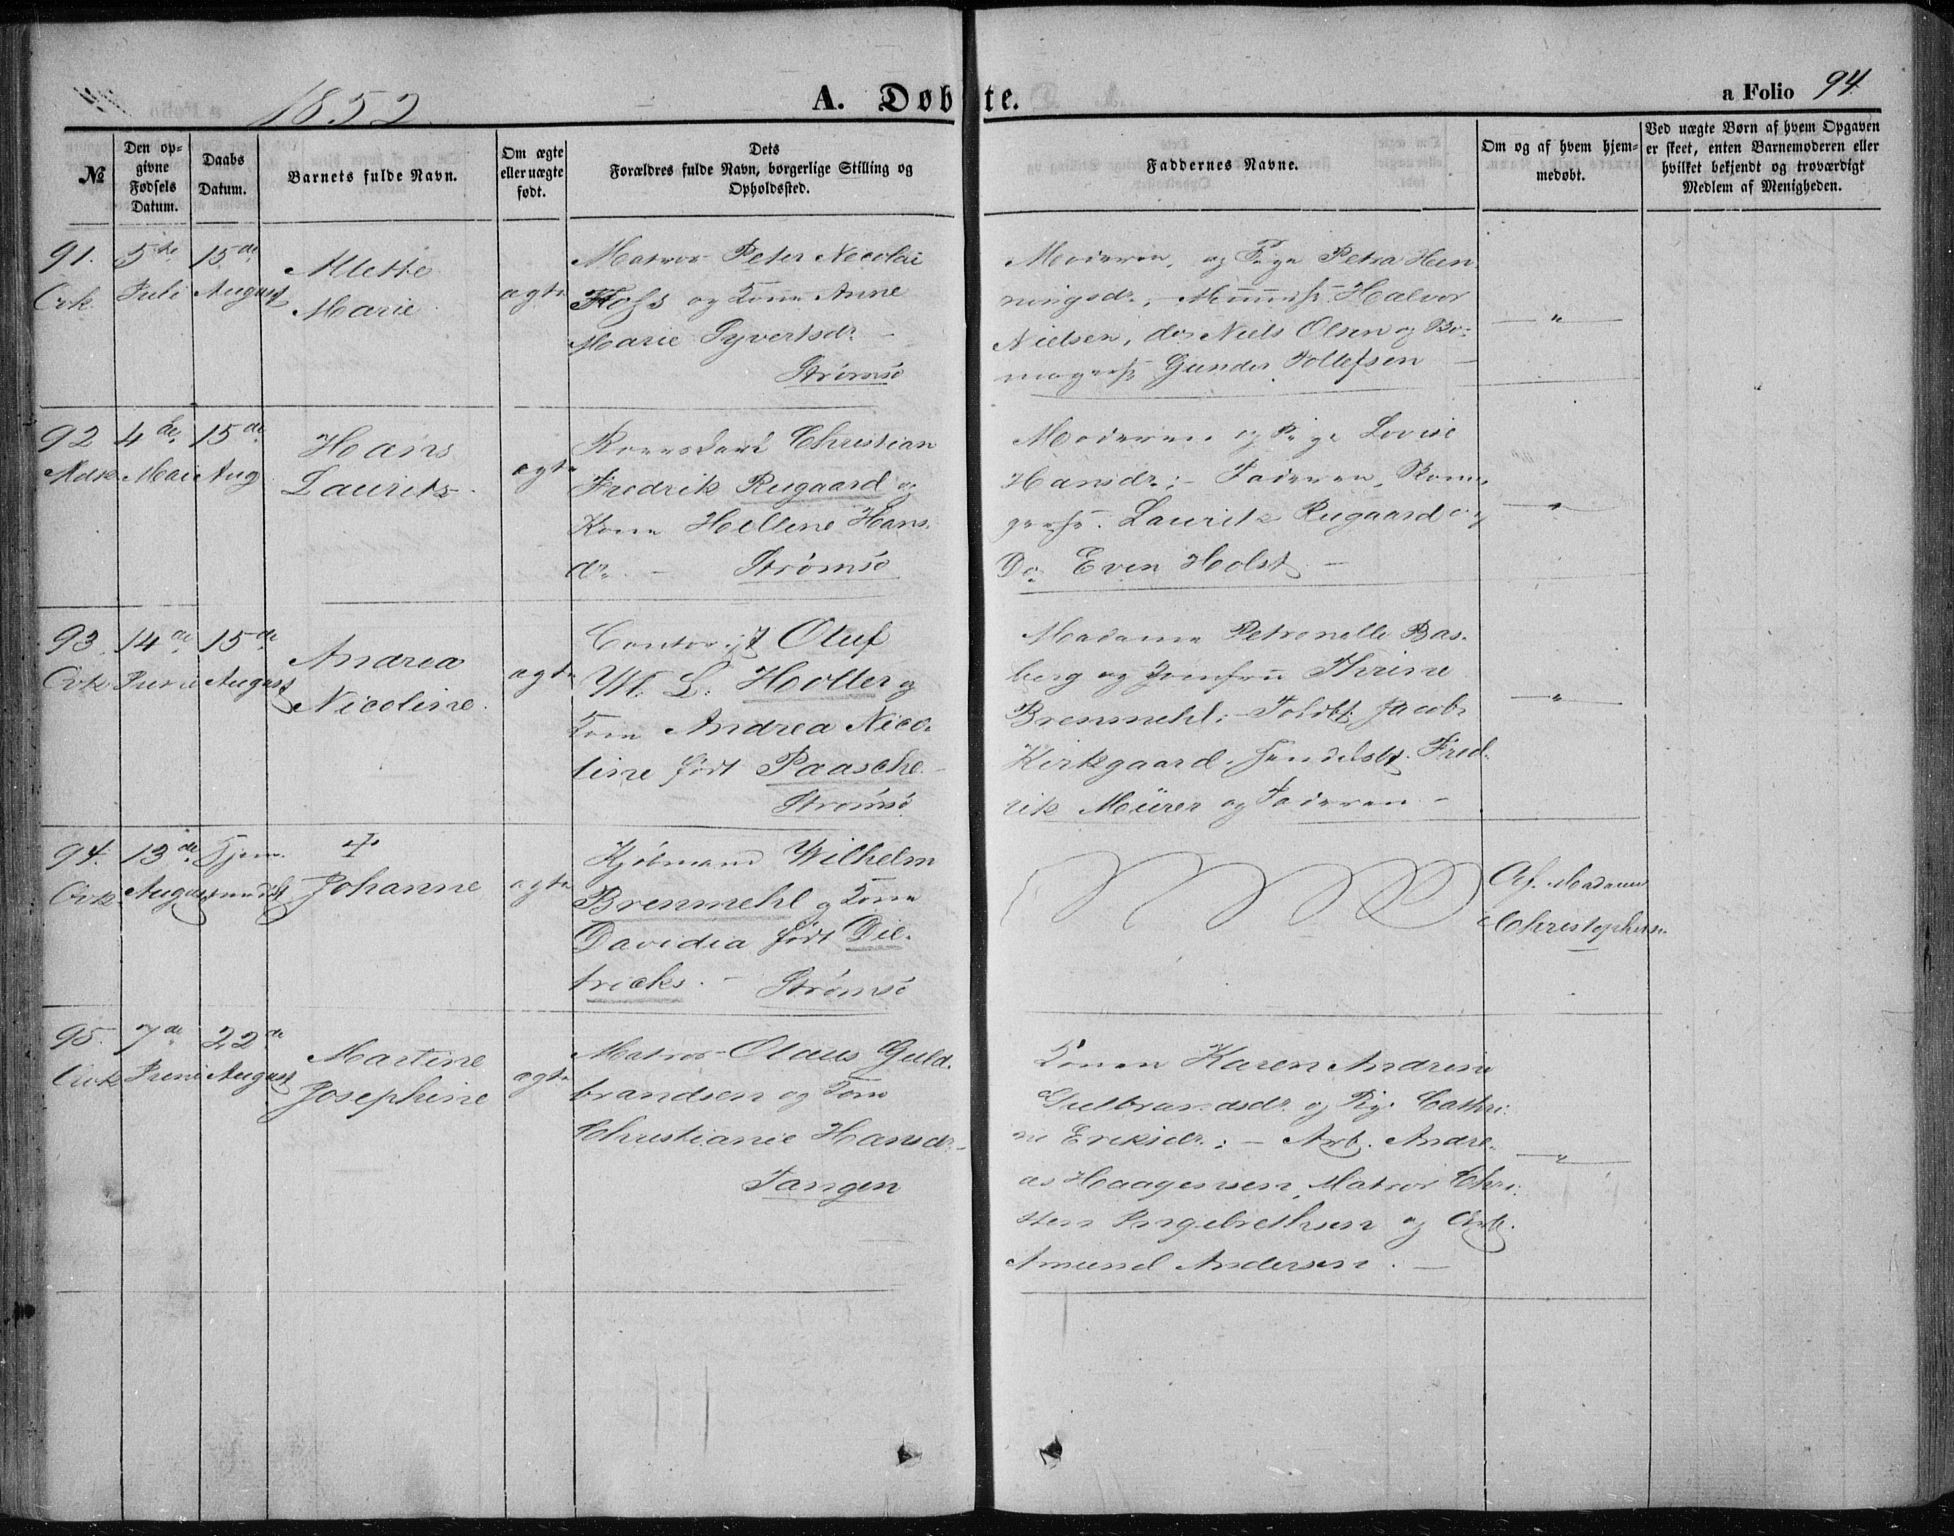 1852.
A. Døbte.
a Folio 94.
№
Den opgivne Fødsels Datum.
Daabs Datum.
Barnets fulde Navn.
Om ægte eller uægte født.
Dets
Forældres fulde Navn, borgerlige Stilling og
Opholdssted.
Faddernes Navne.
Om og af hvem hjemmedøbt.
Ved uægte Børn af hvem Opgaven
er skeet, enten Barnemoderen eller
hvilket bekjendt og troværdigt
Medlem af Menigheden.
91.
5te Juli
15de August
Mette
Marie
ægte
Matros Peter Nicolai
og Kone Anne
Marie Syvertsdr. -
Strømsø
Moderen, og Pige Petra Hen
ningsdr, Halvor
Nielsen, do Niels Olsen og
Gunder Tollefsen -
"
92
4de Mai
15de Aug
Hans
Laurits
ægte
Christian
Fredrik Rugaard og
Kone Helline Hans
dr. - Strømsø
Moderen og Pige Lovise
Hansdr; - Faderen,
Lauritz Rugaard og
Do Even Holst -
"
93.
14de Juni
15de August
Andrea
Nicoline.
ægte
Oluf
L. Holter og
Kone Andrea Nico-
line født Paasche -
Strømsø.
Madame Petronelle Bas-
berg og Jomfru Thrine
Brenmehl; - Toldbt. Jacob
Kirkgaard, Handelsbt. Fred-
rik Mürer og Faderen -
"
94.
13de August
Hjemmedøbt
Johanne
ægte
Kjøbmand Wilhelm
Brenmehl og Kone
Davidia født Die-
tricks. - Strømsø
Af Madame
Christophersen
95.
7de Juni
22de August
Martine
Josephine
ægte
Matros Olaus Guld-
brandsen og Kone
Christianie Hansdr. -
Tangen
Konen Karen Andrine
Gulbrandsdr. og Pige Cathri-
ne Eriksdr; - Arb. Andre-
as Haagensen, Matros Chri-
sten Ingebrethsen og Arb.
Amund Andersen. -
"